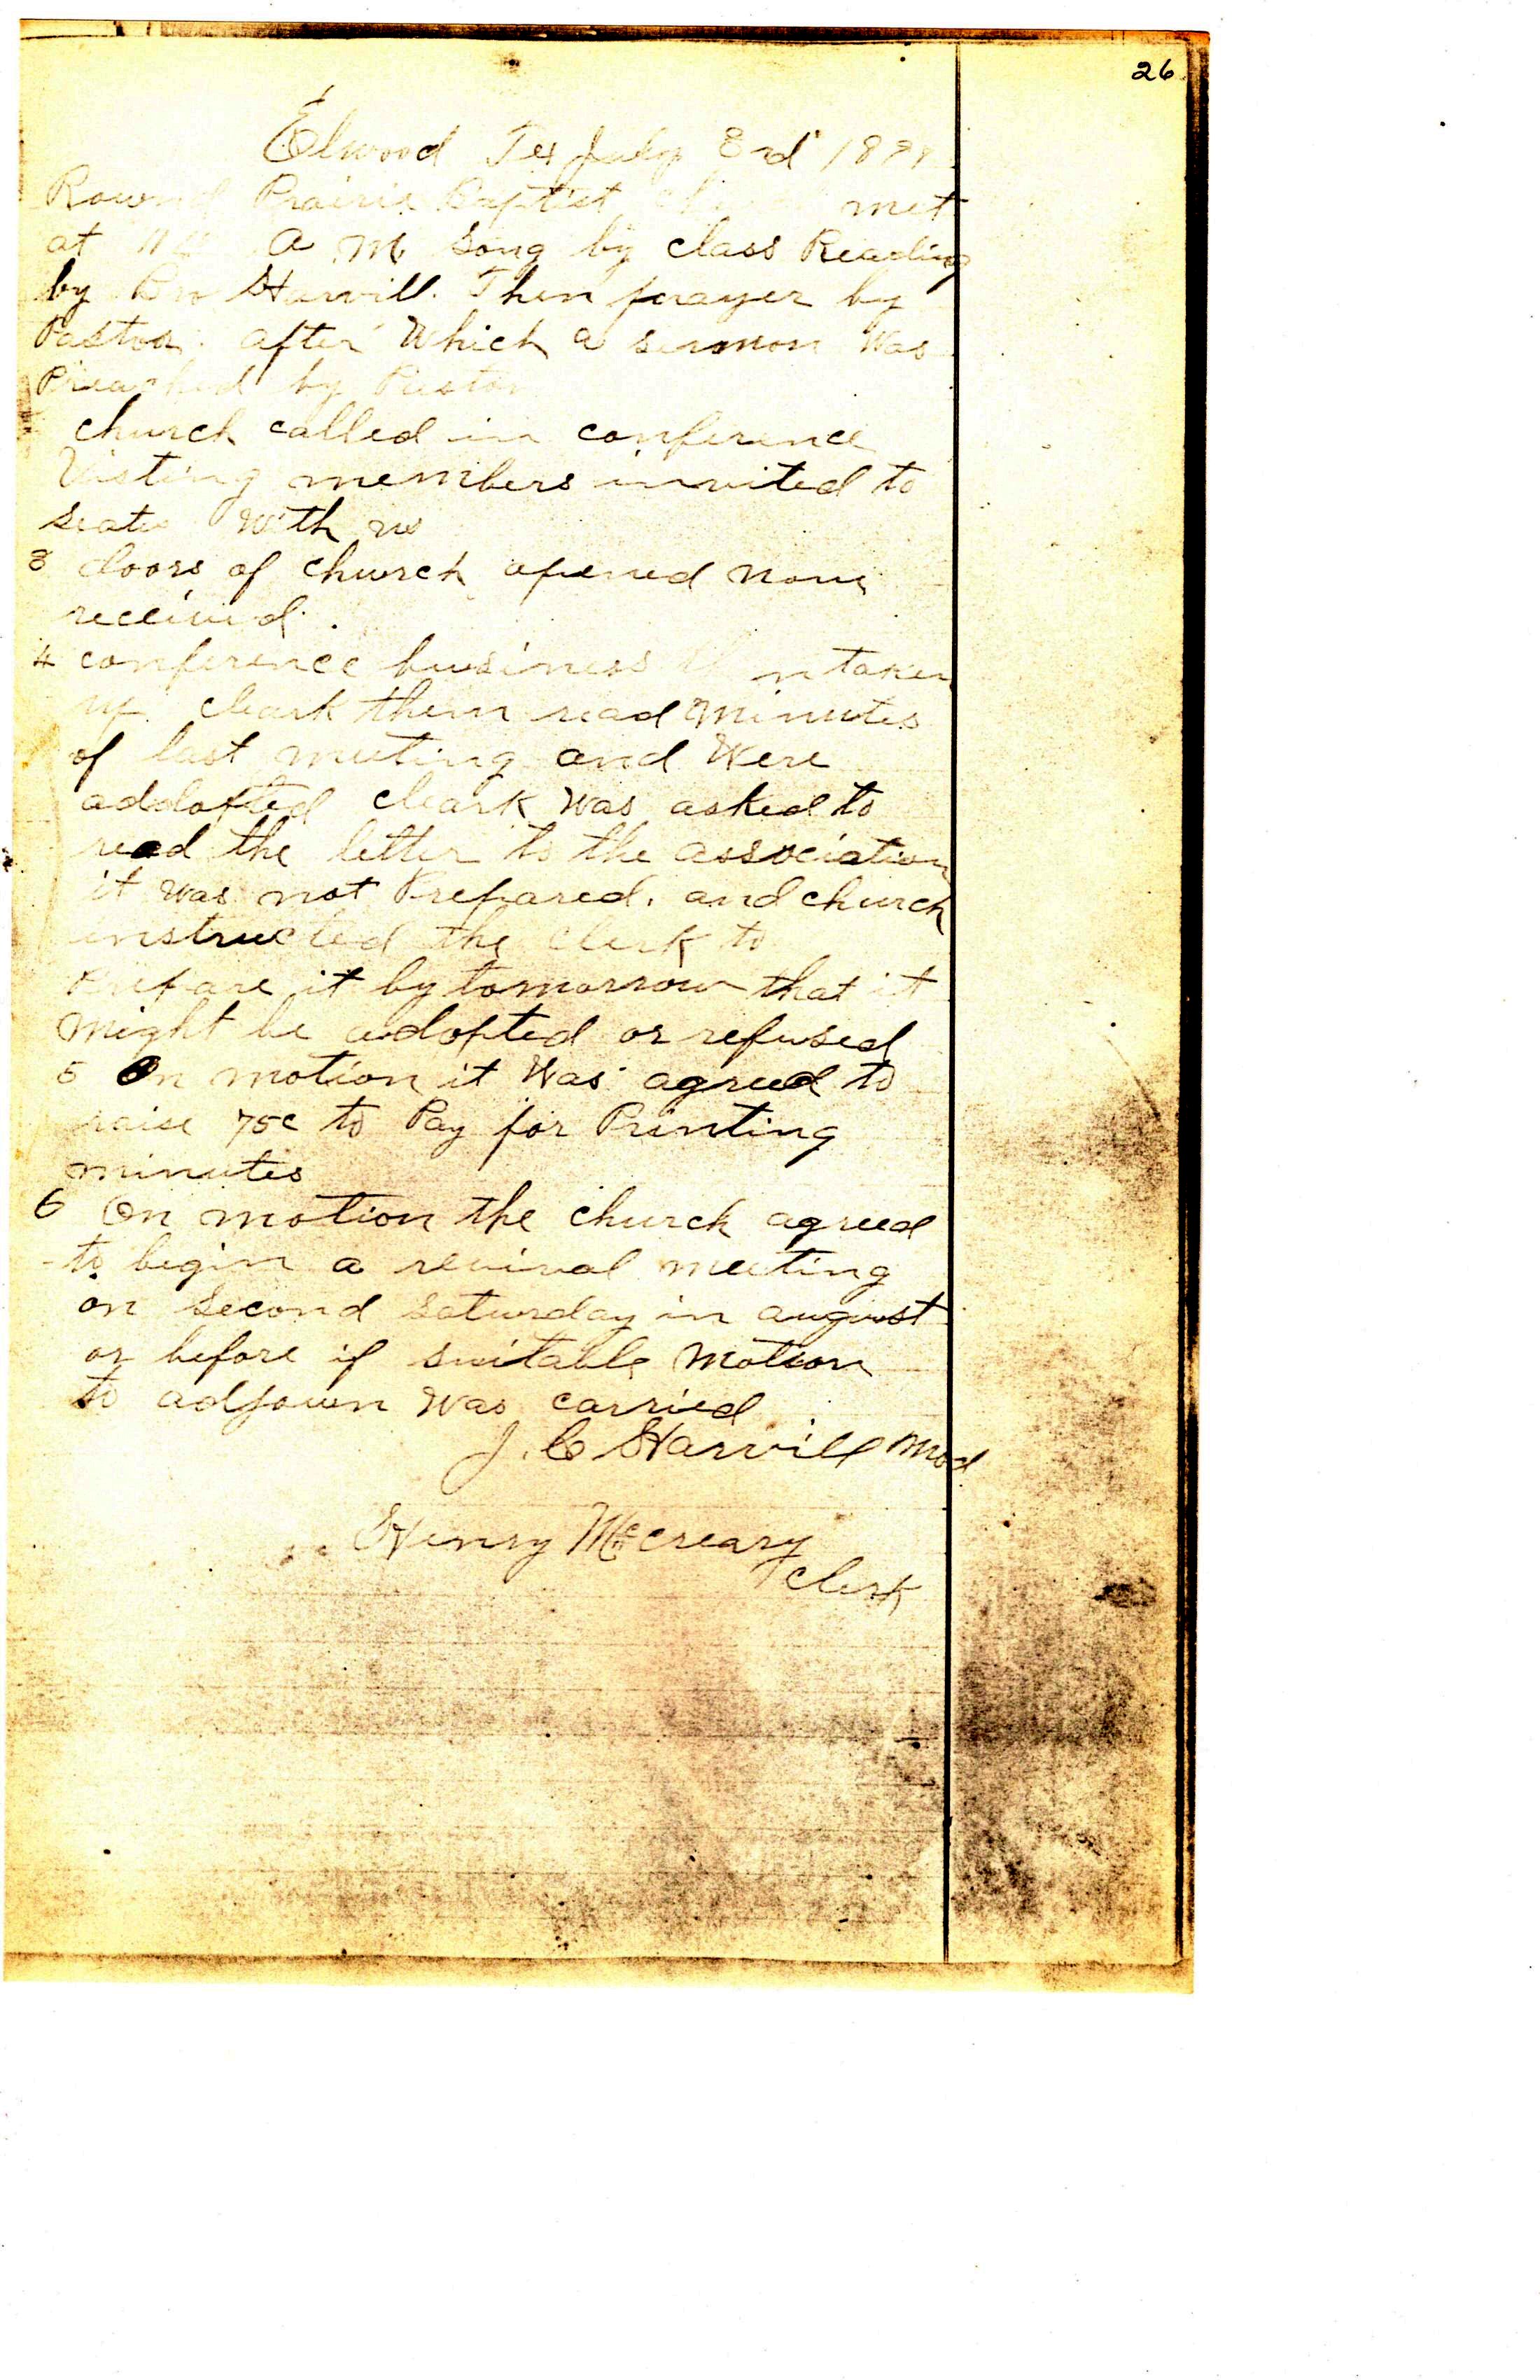 26
Elwood Tex July 3rd
Round Prairie Baptist met
at A M song by class Reading
by Bro Harvill. Then prayer by
Pastor. after Which a sermon Was
Preached by Pastor
church called in conference
Visting members invited to
seats With us
3 doors of church opened none
received.
4 conference business taken
up. cleark then read minutes
of last meeting and Were
addopted cleark Was asked to
read the letter to the association
it was not Prepared. and church
instructed the clerk to
Prepare it by tomorrow that it
might be adopted or refused
5 On motion it Was agreed to
raise 75c to Pay for Printing
minutes
6 On motion the church agreed
to begin a revival meeting
on second saturday in august
or before if suitable motion
to adjourn Was carried
J. C Harvill Mod
Henry McCreary
clerk